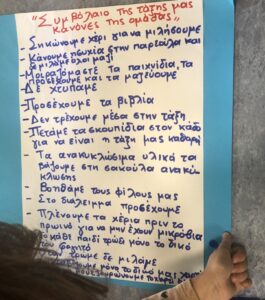 "Συμβόλαιο της τάξης μας
κανόνες της ομάδας"
- Σηκώνουμε χέρι για να μιλήσουμε
- Κάνουμε ησυχία στην παρεούλα και
δε μιλάμε όλοι μαζί
- Μοιραζόμαστε τα παιχνίδια, τα
προσέχουμε και τα μαζεύουμε
- Δε χτυπάμε
- Προσέχουμε τα βιβλία
- Δεν τρέχουμε μέσα στην τάξη
- Πετάμε τα σκουπίδια στον κάδο
για να είναι η τάξη μας καθαρή
- Τα ανακυκλώσιμα υλικά τα
βάζουμε στη σακούλα ανακύ
κλωσης
- Βοηθάμε τους φίλους μας
- Στο διάλειμμα προσέχουμε
- Πλένουμε τα χέρια πριν το
πρωινό για να μην έχουν μικρόβια
το κάθε παιδί τρώει μόνο το δικό
του φαγητό
όταν τρώμε δε μιλάμε
μόνο το δικό μας χαρτί